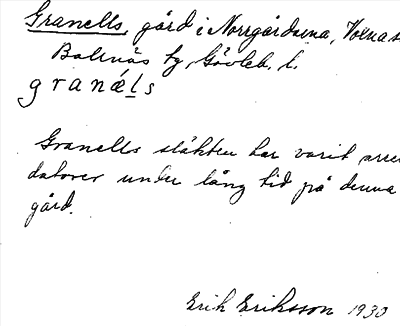 Granells, gård i Norrgårdarna, Voxna
Bollnäs tg, Gävleb. l.
granǽls
Granells släkten har varit arren
datorer under lång tid på denna
gård.
Erik Eriksson 1930